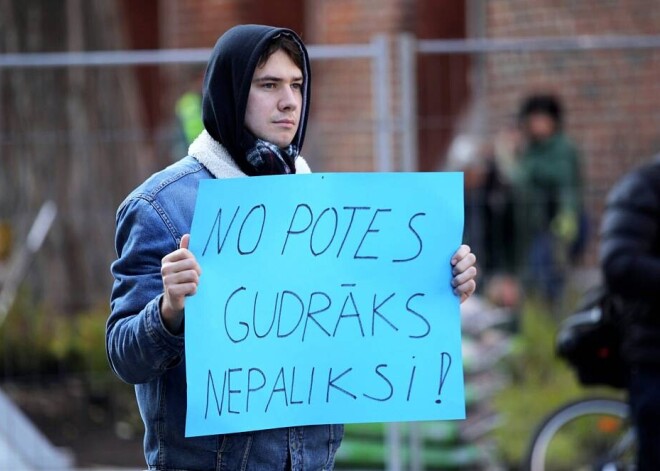 NO POTES
GUDRĀKS
NEPALIKSi!